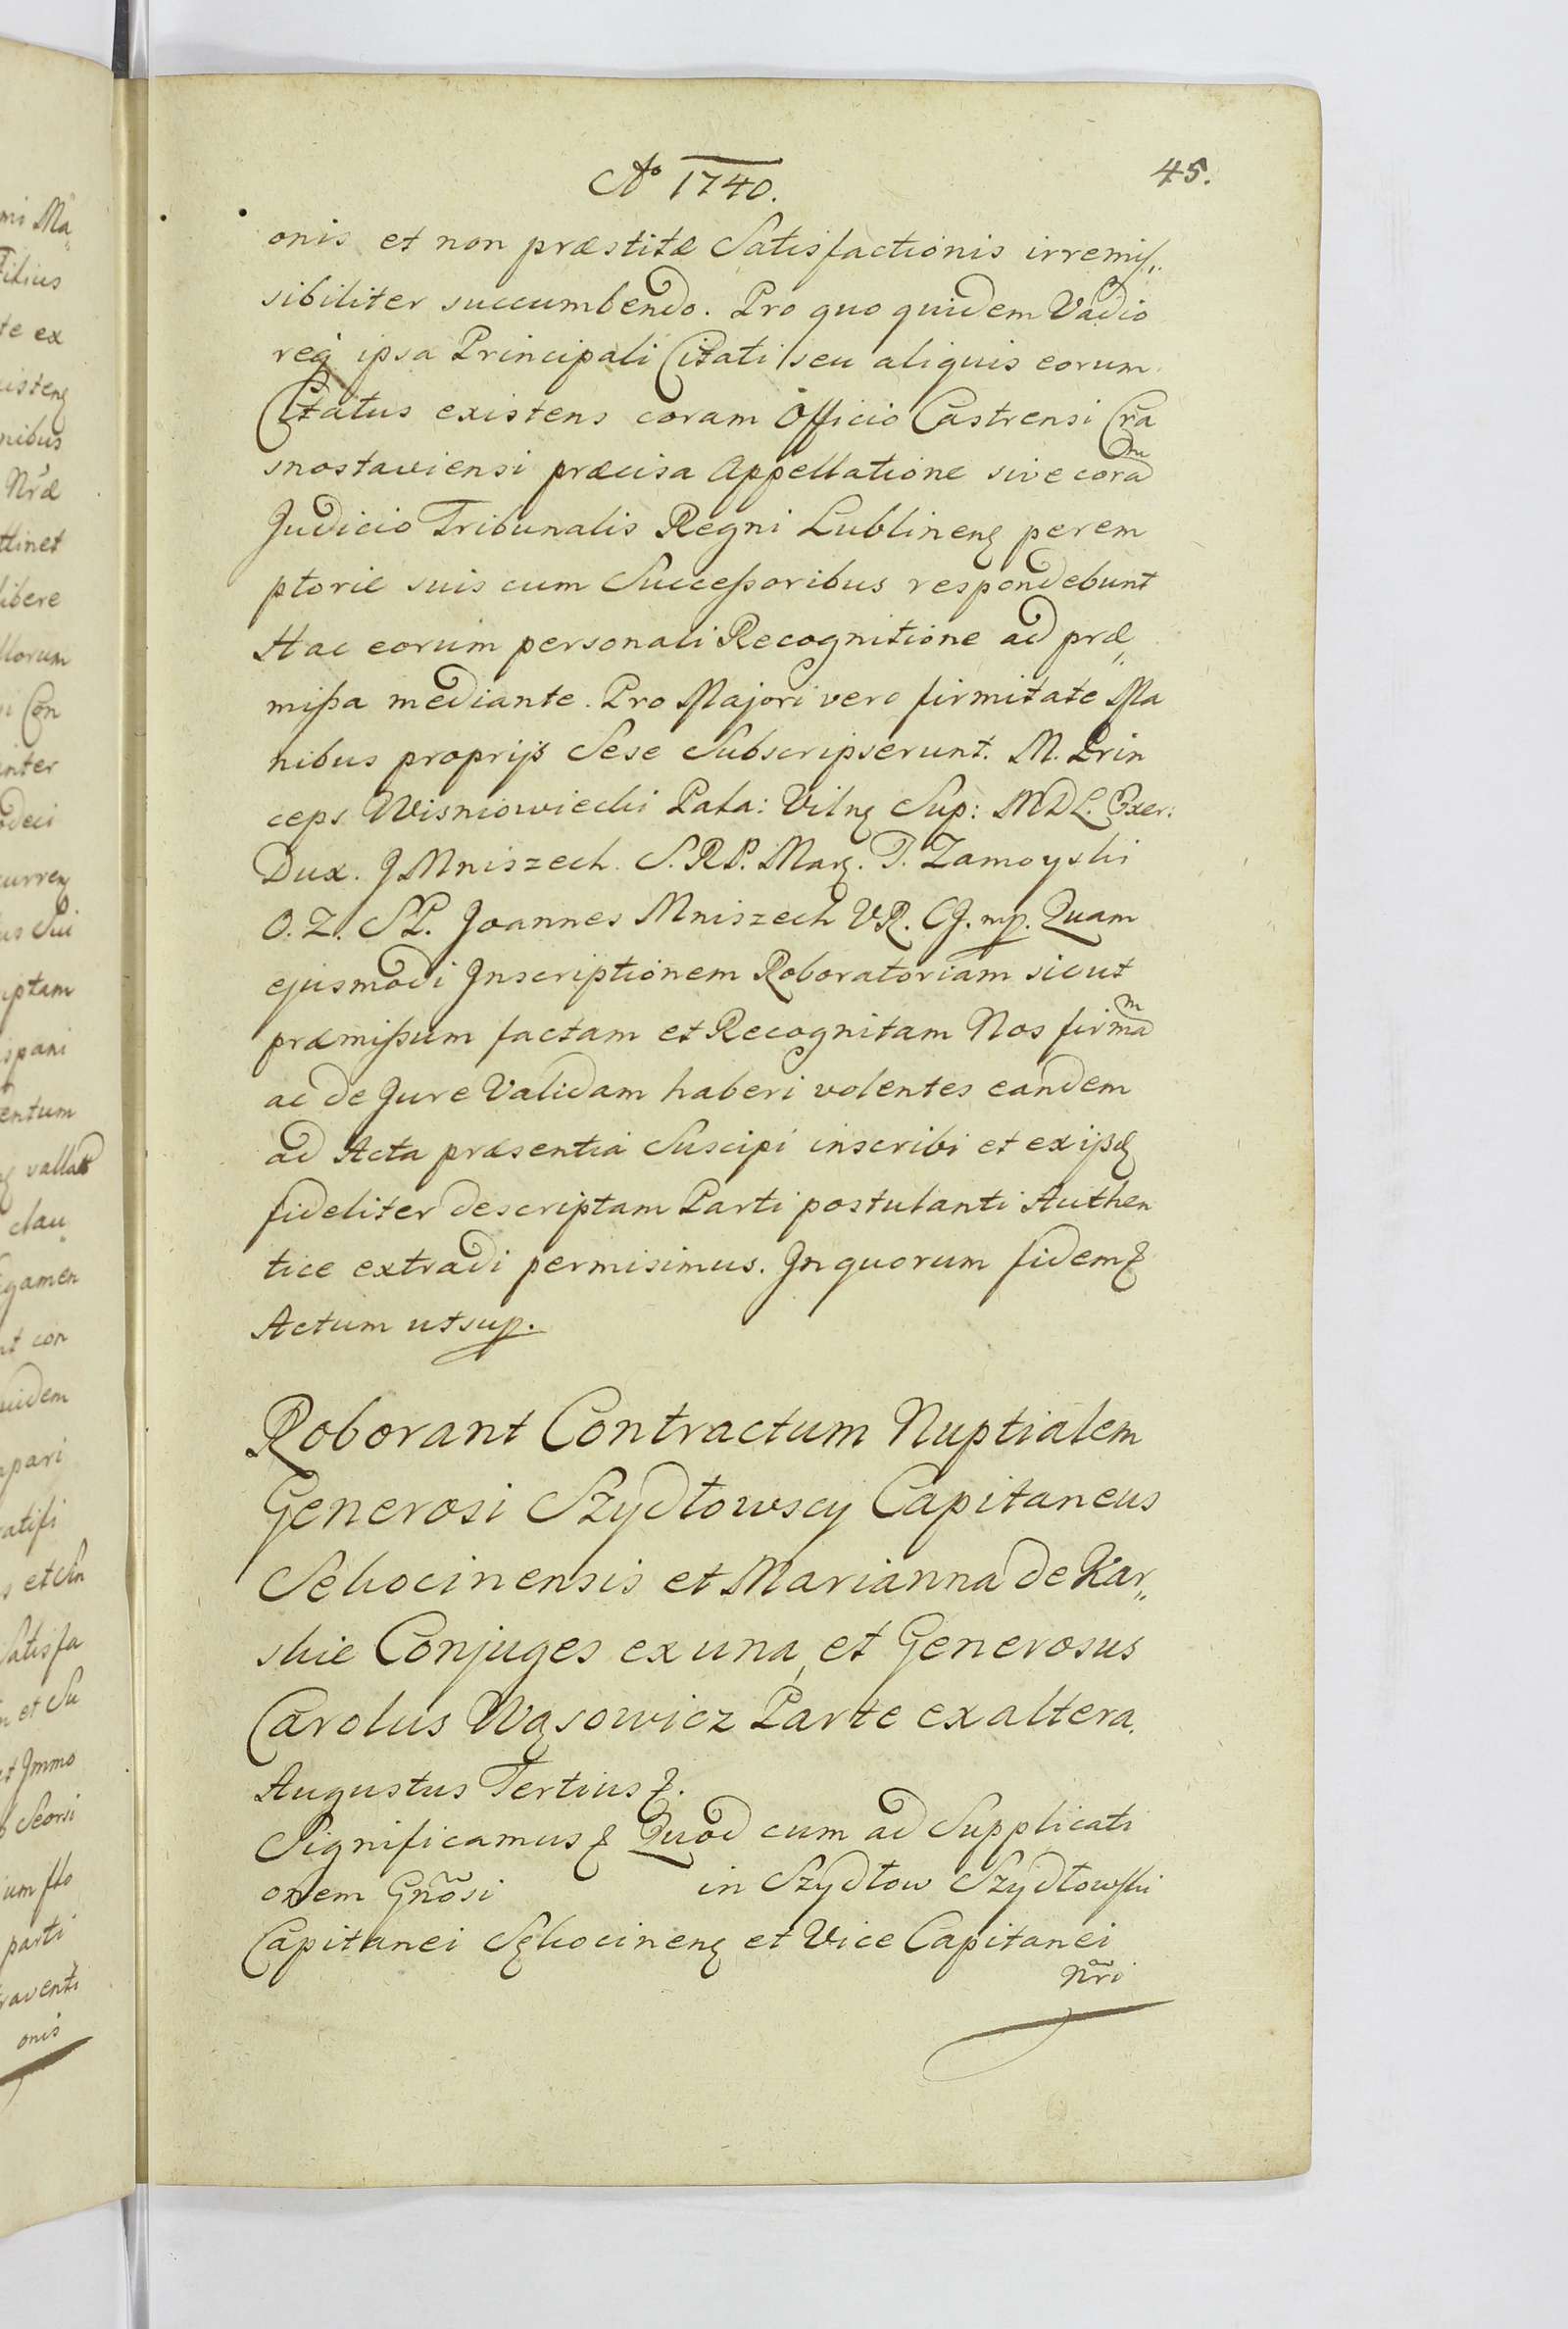 Aº 1740.
45.
onis et non præstitæ Satisfactionis irremis„
sibiliter succumbendo. Pro quo quidem Vadio
req ipsa Principali Citati seu aliquis eorum
Citatus existens coram Officio Castrensi Cra
snostaviensi præcisa Appellatione sive coram
Judicio Tribunalis Regni Lublinenę perem
ptorie suis cum Successoribus respondebunt
Hac eorum personali Recognitione ad præ„
missa mediante. Pro Majori vero firmitate Ma
nibus proprijs Sese Subscripserunt. M. Prin
ceps Wisniowiecki Pala: Vilnę Sup: MDL. Exer:
Dux. J Mniszech. S.R.P. Marę. T. Zamoyski
O. Z. S P. Joannes Mniszech VR. CJ. mp. Quam
ejusmodi Inscriptionem Roboratoriam sicut
præmissum factam et Recognitam Nos firmam
ac de Jure Validam haberi volentes eandem
ad Acta præsentia Suscipi inscribi et ex issdę
fideliter descriptam Parti postulanti Authen
tice extradi permisimus. In quorum fidem &
Actum ut sup.
Roborant Contractum Nuptialem
Generosi Szydłowscy Capitaneus
Sekocinensis et Marianna de Kar„
skie Conjuges ex una, et Generosus
Carolus Wąsowicz Parte ex altera.
Augustus Tertius &.
Significamus & Quod cum ad Supplicati
onem Gnõsi in Szydłow Szydłowski
Capitanei Sękocinenę et Vice Capitanei
Nr̃i